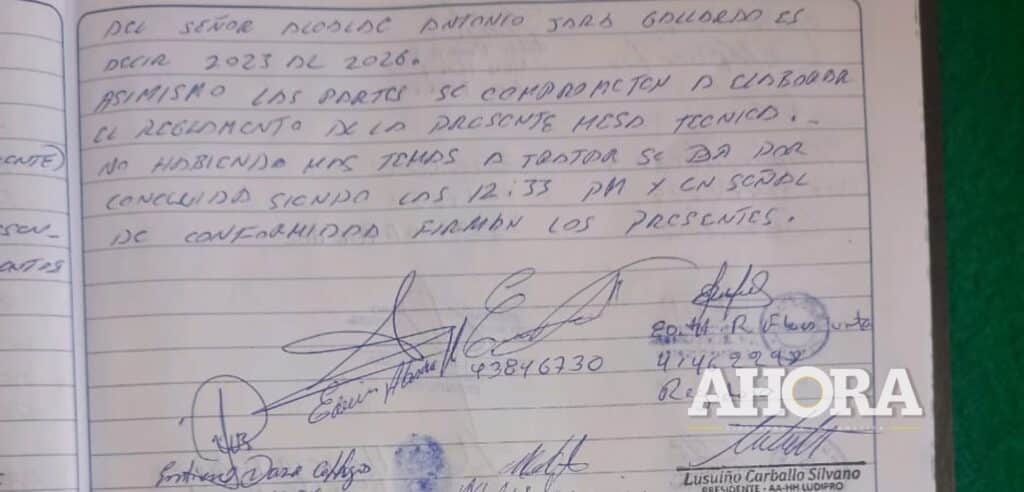 DEL SEÑOR ALCALDE ANTONIO JARA GALLARDO ES
DECIR 2023 AL 2026.
ASIMISMO LAS PARTES SE COMPROMETEN A ELABORAR
EL REGLAMENTO DE LA PRESENTE MESA TECNICA.-
NO HABIENDO MAS TEMAS A TRATAR SE DA POR
CONCLUIDA SIENDO LAS 12:33 PM Y EN SEÑAL
DE CONFORMIDAD FIRMAN LOS PRESENTES.
ENTE)
ESEN-
ENTOS
Edwin
43846730
R Flores
AHORA
Lusuiño Carballo Silvano
PRESIDENTE - AA-HH LUDIPRO